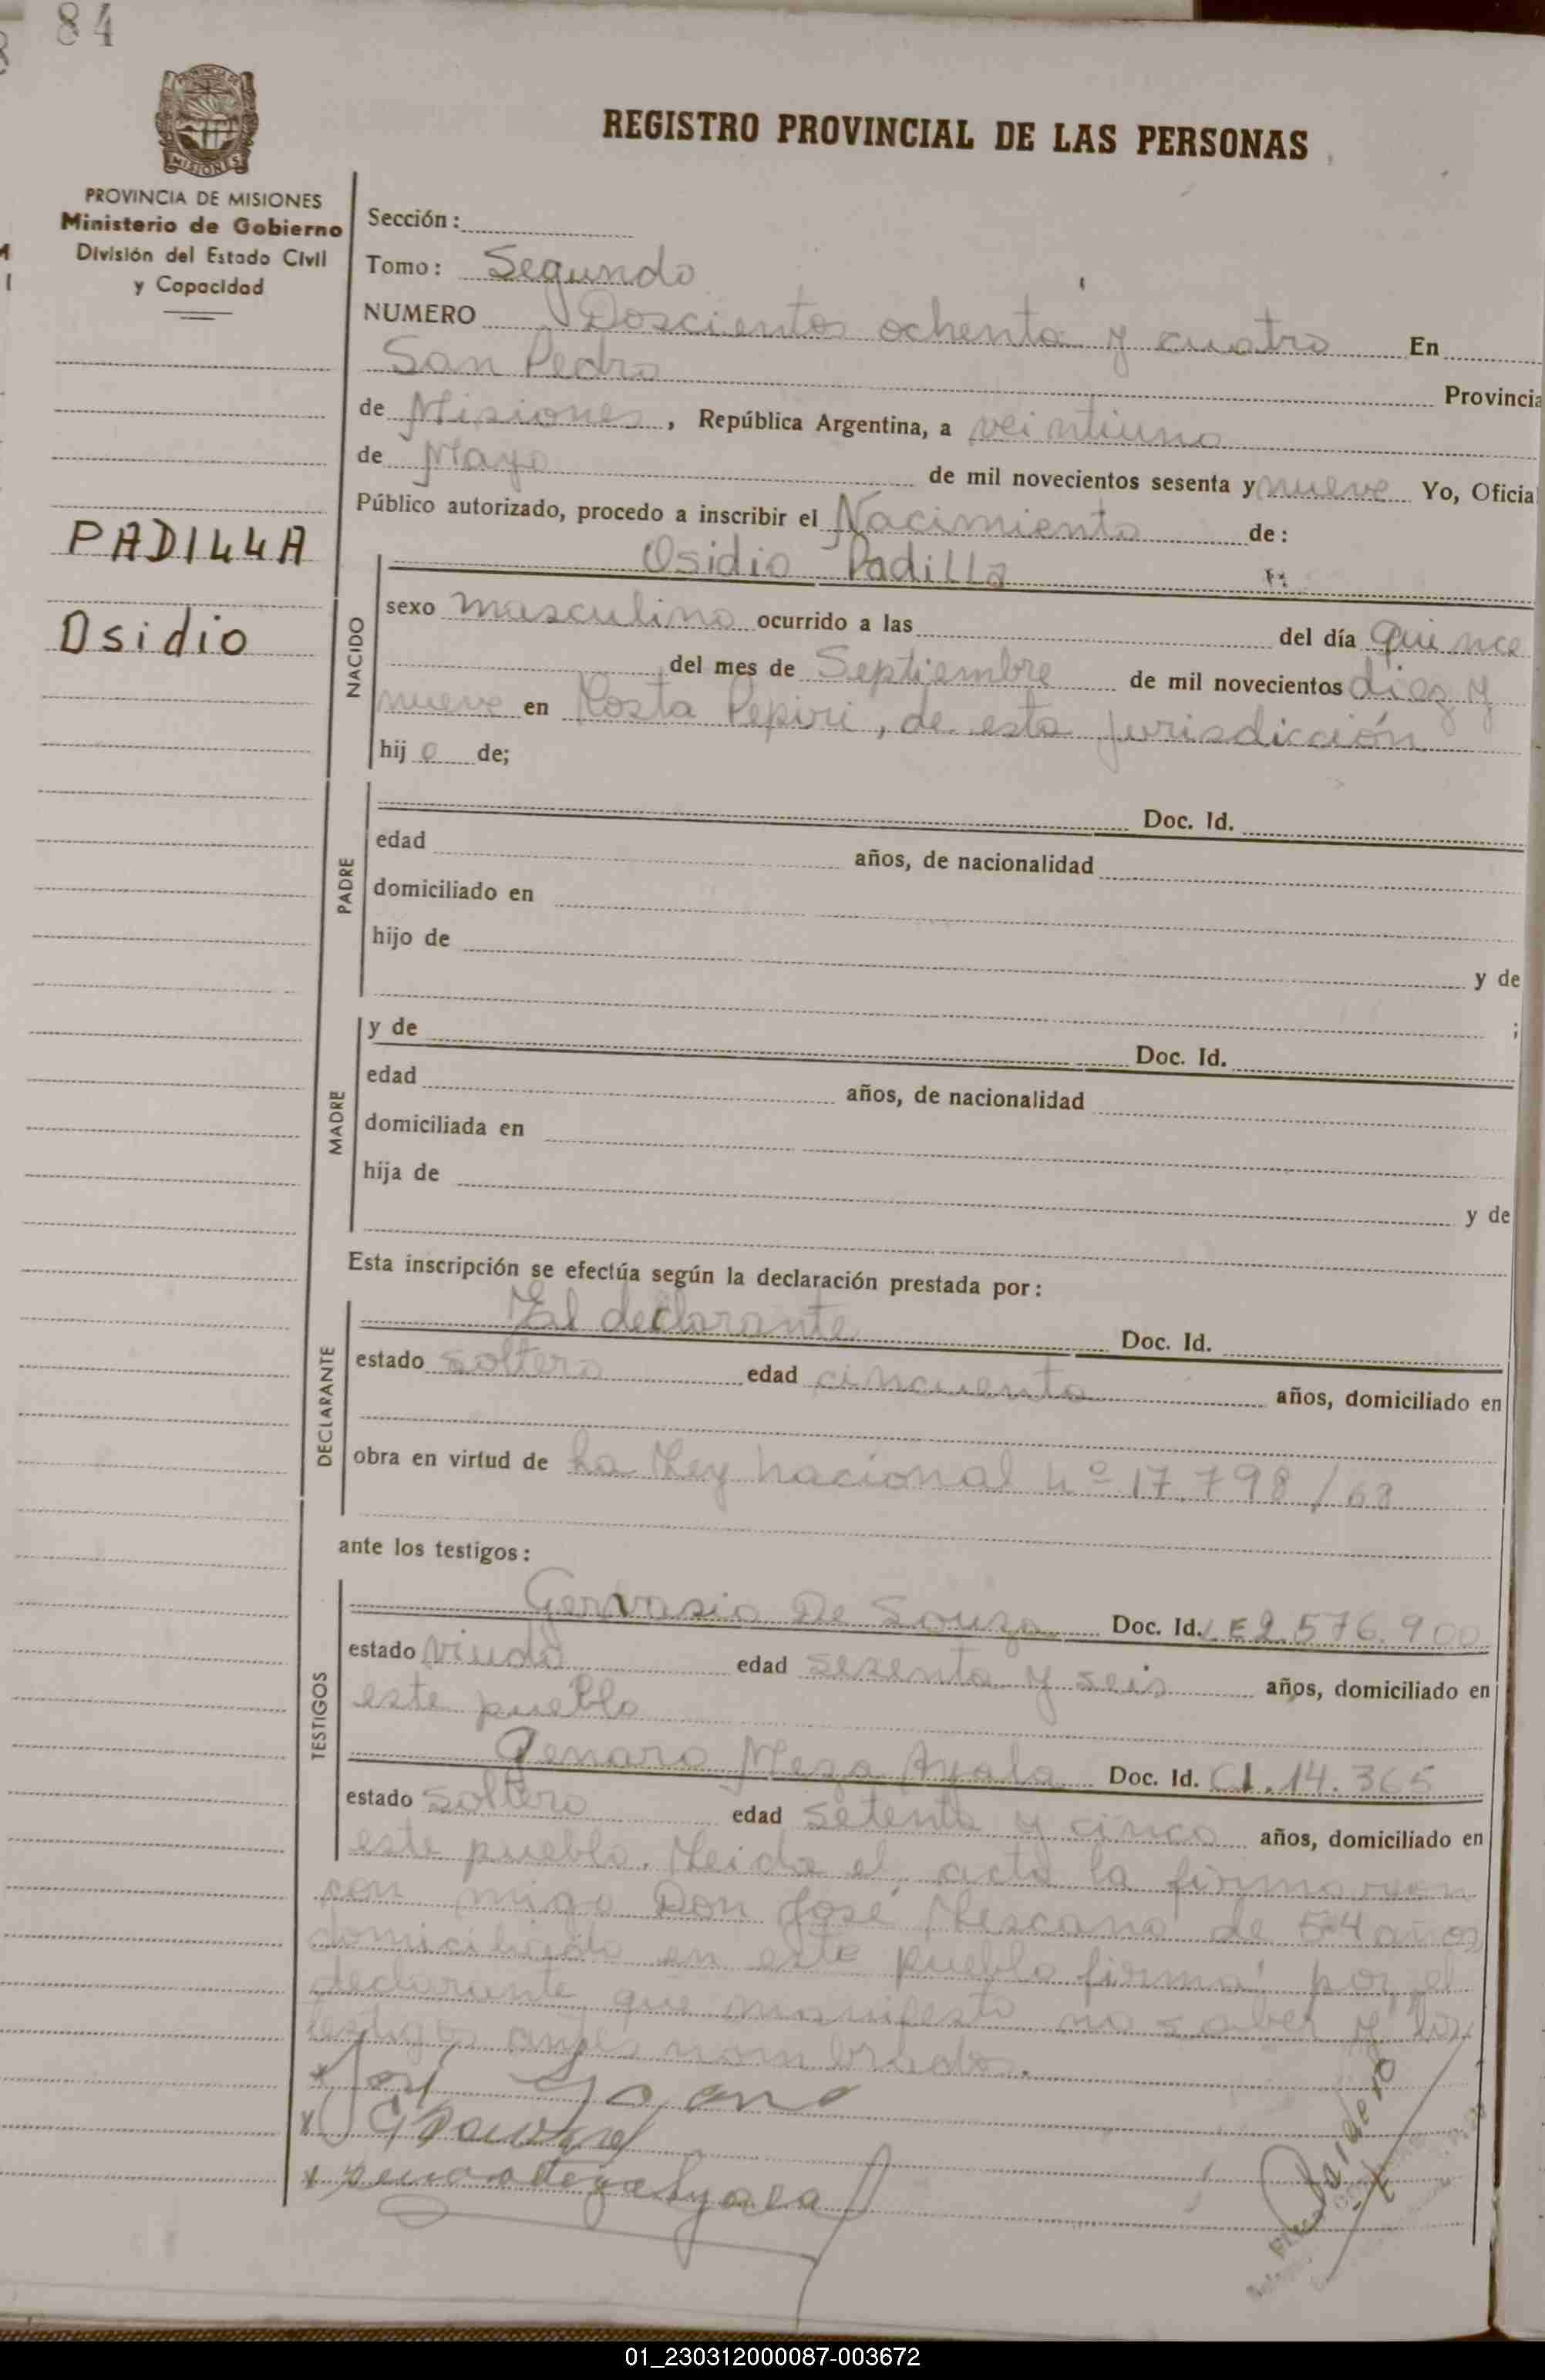 84
MISIONES
PROVINCIA DE MISIONES
Ministerio de Gobierno
División del Estado Civil
y Capacidad
PADILLA
Osidio
REGISTRO PROVINCIAL DE LAS PERSONAS
Sección:
Tomo: Segundo
NUMERO Doscientos ochenta y cuatro En
San Pedro Provincia
de Misiones, República Argentina, a veintiuno
de Mayo de mil novecientos sesenta y nueve Yo, Oficia
Público autorizado, procedo a inscribir el Nacimiento de:
Osidio Padilla
NACIDO
sexo masculino ocurrido a las del día quince
del mes de Septiembre de mil novecientos diez y
nueve en Costa Pepiri, de esta jurisdicción
hij o de;
PADRE
Doc. Id.
edad años, de nacionalidad
domiciliado en
hijo de y de
;
MADRE
y de Doc. Id.
edad años, de nacionalidad
domiciliada en
hija de y de
Esta inscripción se efectúa según la declaración prestada por:
DECLARANTE
El declarante Doc. Id.
estado soltero edad cincuenta años, domiciliado en
obra en virtud de La Ley nacional nº 17.798/68
ante los testigos:
TESTIGOS
Gervasio De Souza Doc. Id. LE 2.576.900
estado viudo edad sesenta y seis años, domiciliado en
este pueblo
Genaro Meza Ayala Doc. Id. CI. 14.365
estado soltero edad setenta y cinco años, domiciliado en
este pueblo. Leida el acta la firmaron
con migo Don José Lescano de 54 años
domiciliado en este pueblo firma por el
declarante que manifesto no saber y los
testigos antes nombrados.
01_230312000087-003672